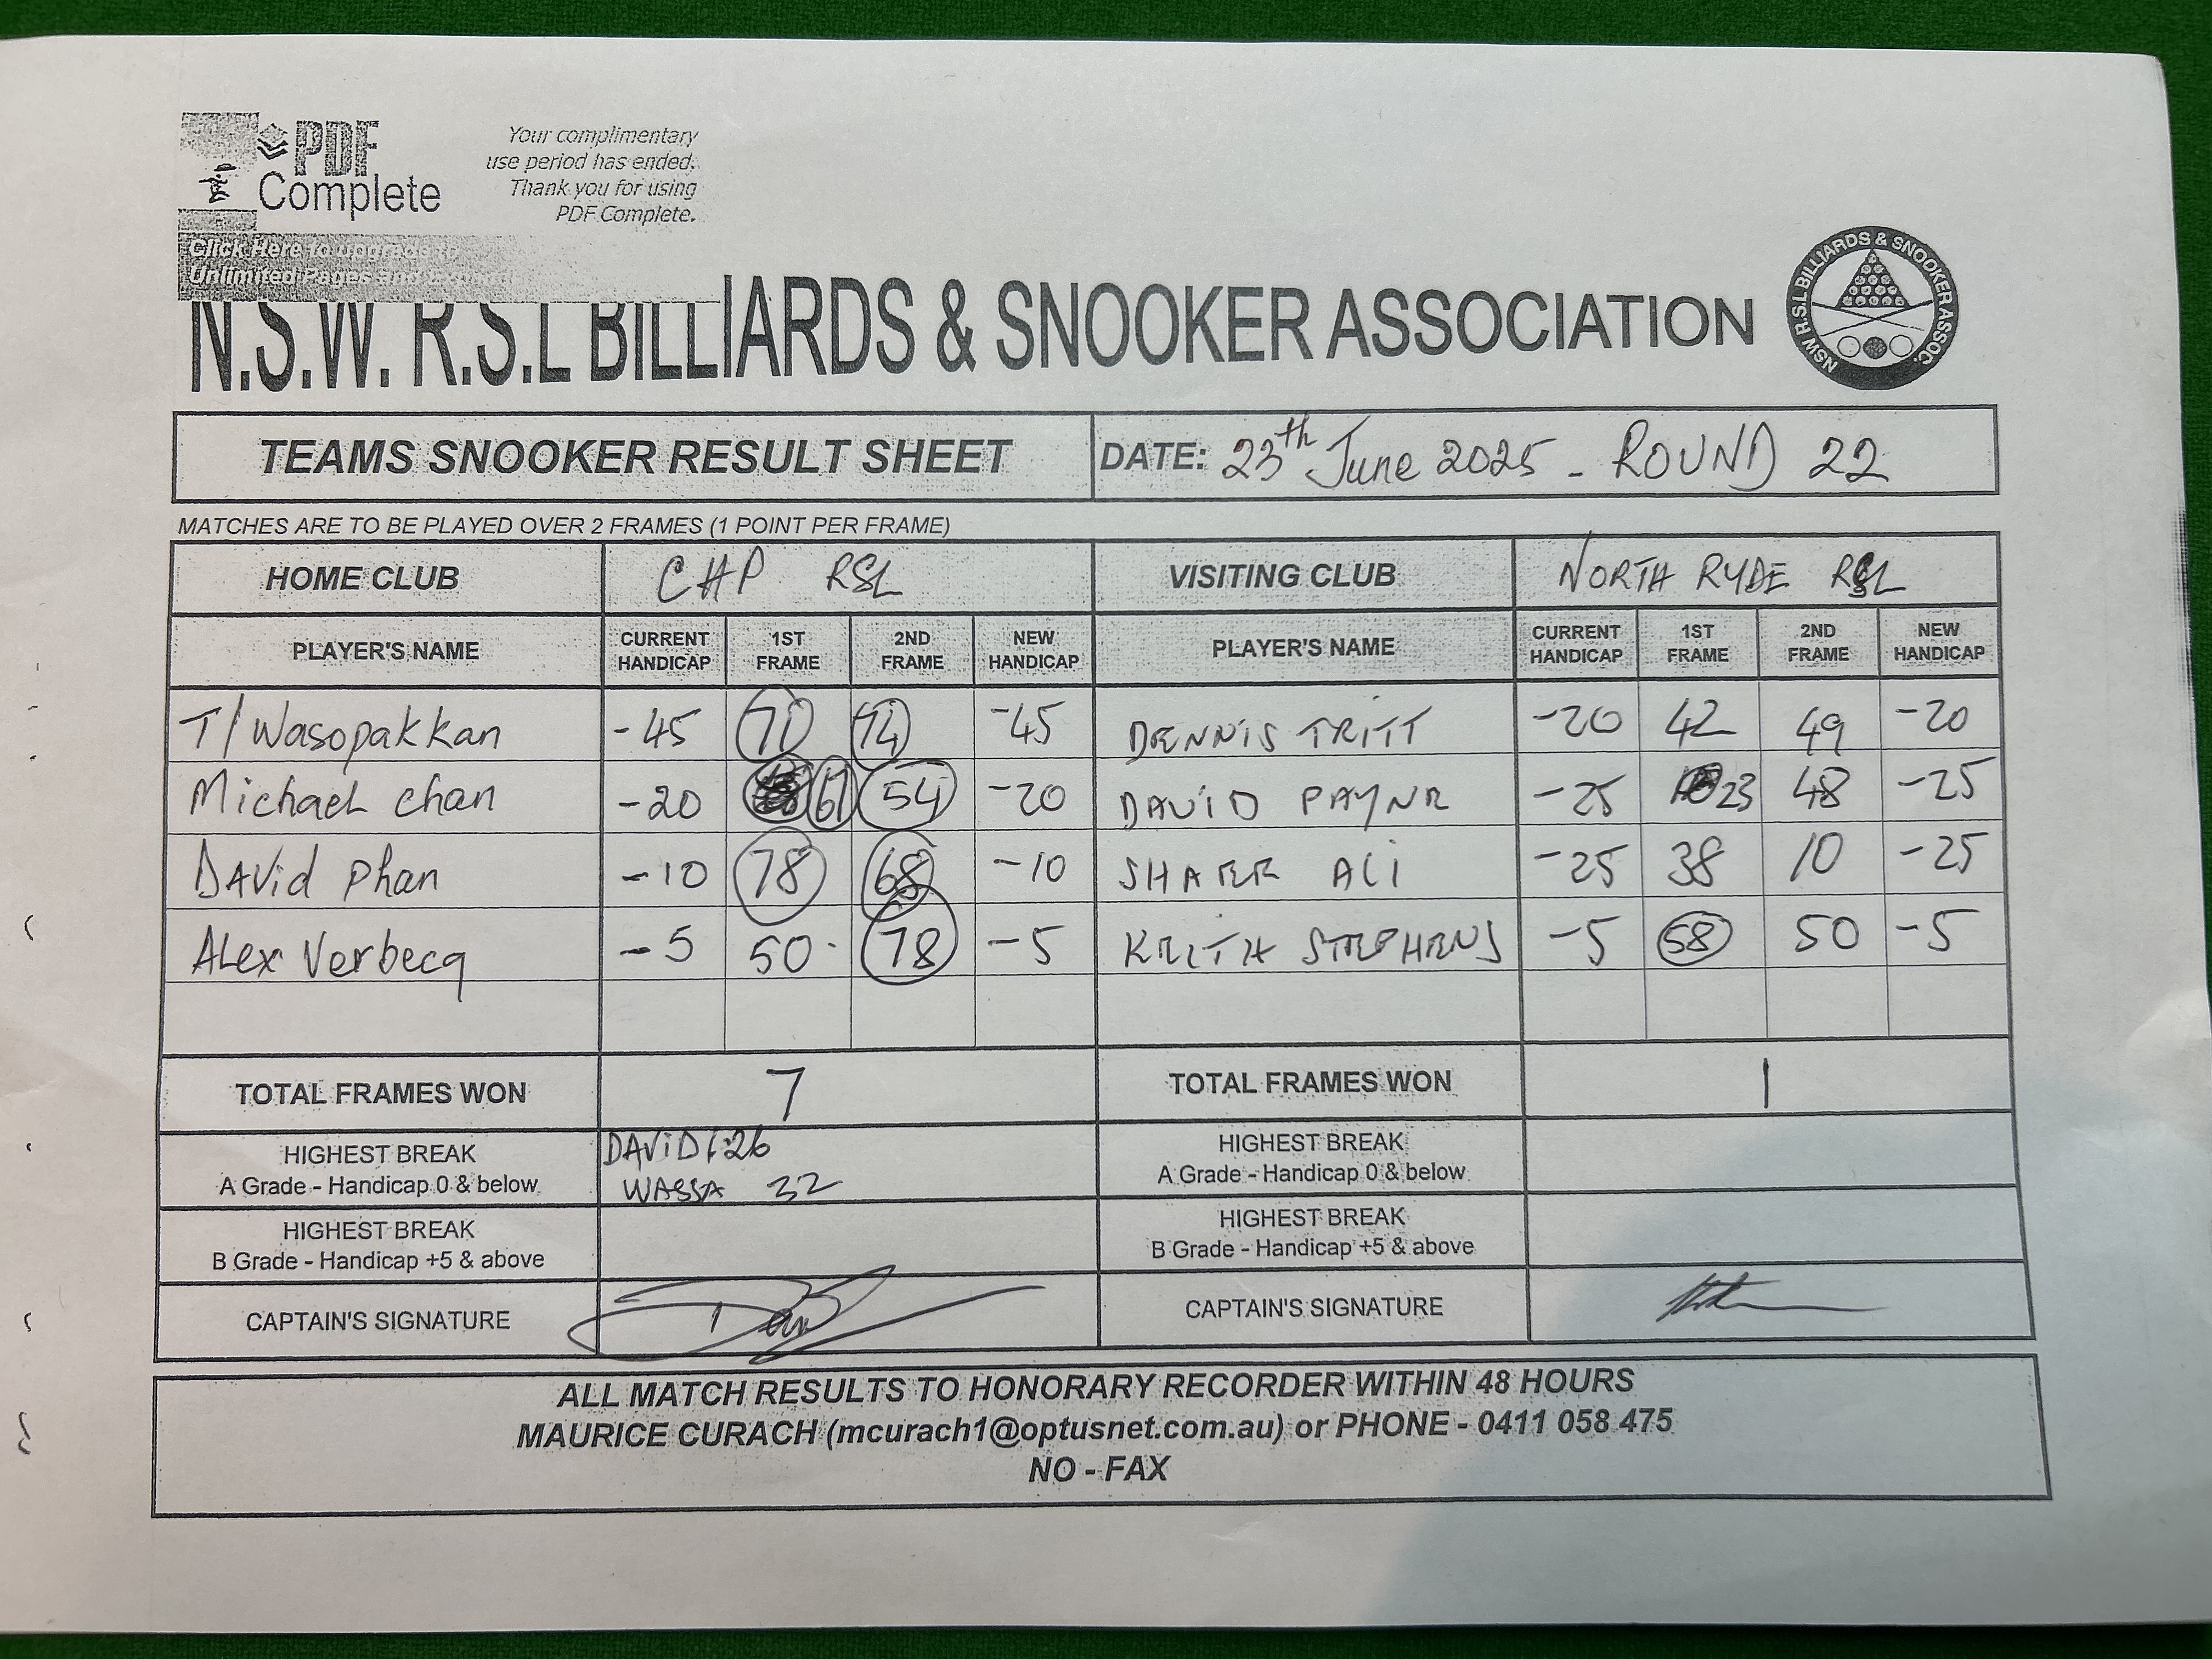 PDF Complete
Your complimentary
use period has ended.
Thank you for using
PDF Complete.
Click Here to upgrade to
Unlimited Pages and
N.S.W. R.S.L BILLIARDS & SNOOKER ASSOCIATION
NSW R.S.L BILLIARDS & SNOOKER ASSOC.
TEAMS SNOOKER RESULT SHEET DATE: 23th June 2025 - ROUND 22
MATCHES ARE TO BE PLAYED OVER 2 FRAMES (1 POINT PER FRAME)
HOME CLUB CHP RSL VISITING CLUB NORTH RYDE RSL
PLAYER'S NAME CURRENT HANDICAP 1ST FRAME 2ND FRAME NEW HANDICAP PLAYER'S NAME CURRENT HANDICAP 1ST FRAME 2ND FRAME NEW HANDICAP
T/Wasopakkan -45 71 74 -45 DENNIS TRITT -20 42 49 -20
Michael chan -20 61 54 -20 DAVID PAYNE -25 23 48 -25
DAVid Phan -10 78 68 -10 SHAFER ALI -25 38 10 -25
ALex Verbecq -5 50 78 -5 KEITH STEPHENS -5 58 50 -5
TOTAL FRAMES WON 7 TOTAL FRAMES WON 1
HIGHEST BREAK
A Grade - Handicap 0 & below
DAViD 26
WASSA 32
HIGHEST BREAK
A Grade - Handicap 0 & below
HIGHEST BREAK
B Grade - Handicap +5 & above
HIGHEST BREAK
B Grade - Handicap +5 & above
CAPTAIN'S SIGNATURE CAPTAIN'S SIGNATURE
ALL MATCH RESULTS TO HONORARY RECORDER WITHIN 48 HOURS
MAURICE CURACH (mcurach1@optusnet.com.au) or PHONE - 0411 058 475
NO - FAX